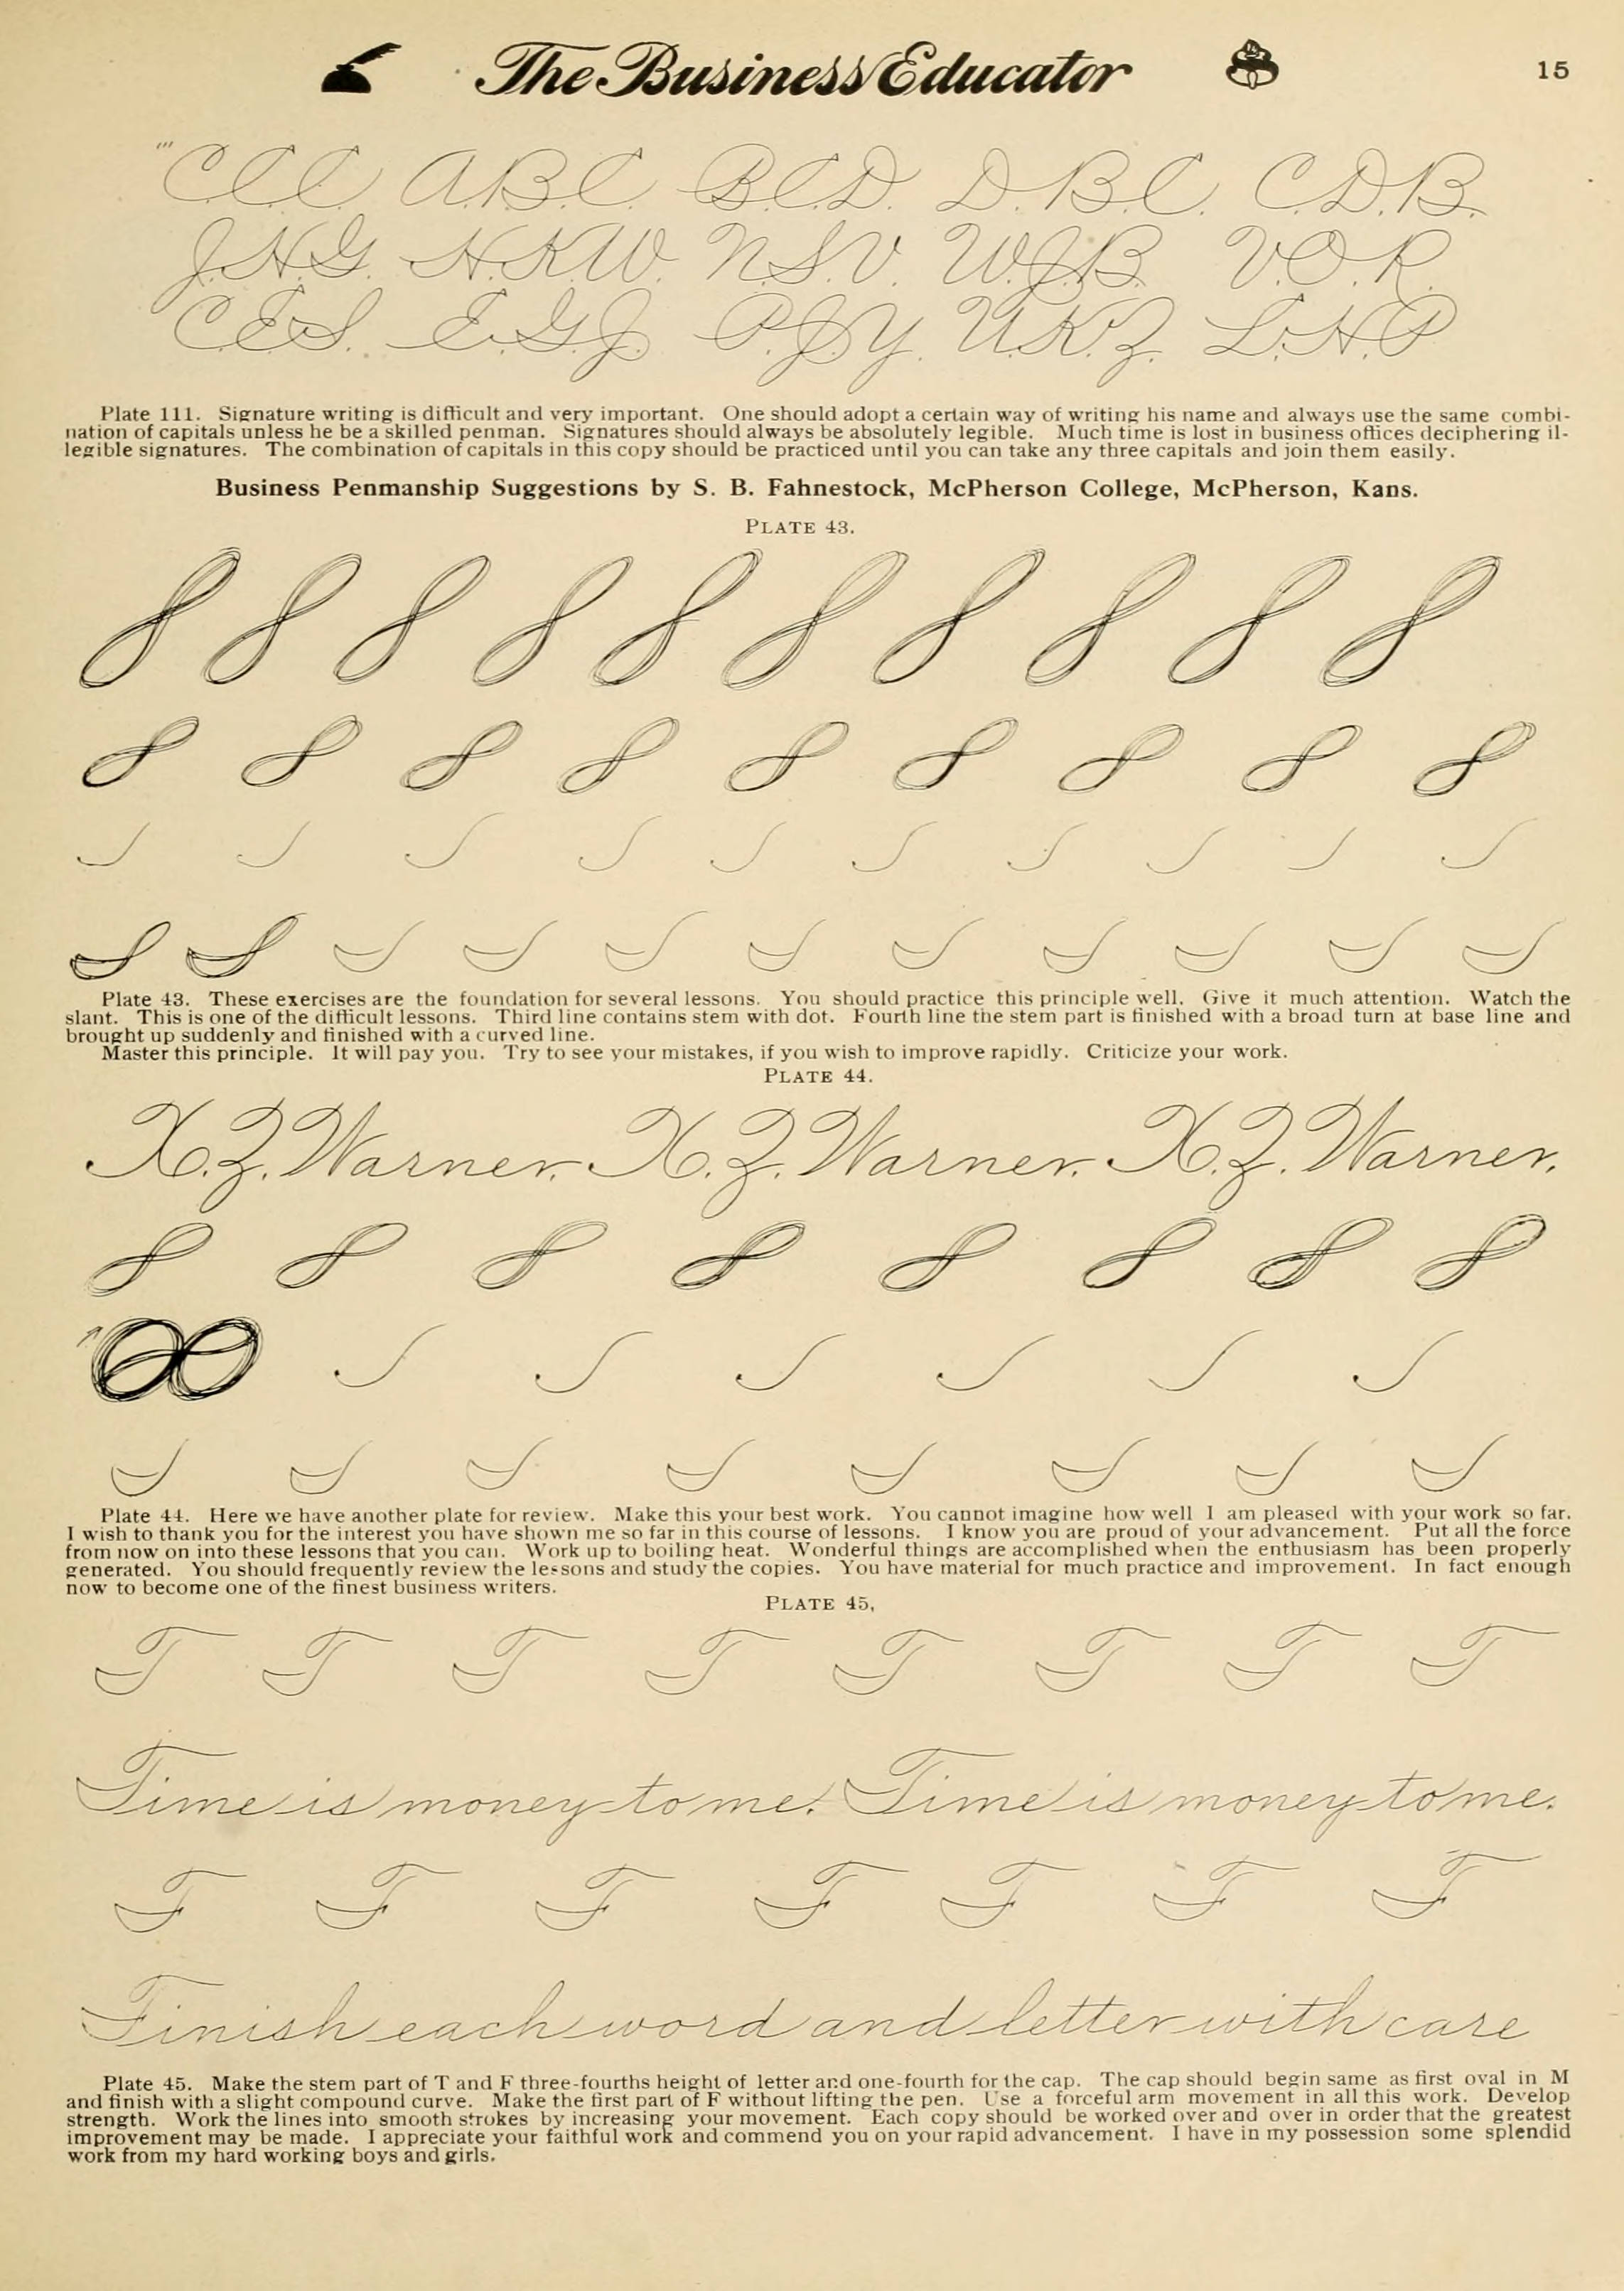 The Business Educator
15
111
C.C.C. A.B.C. B.C.D. D.B.C. C.D.B.
J.N.G. H.K.W. N.S.V. W.J.B. V.O.R.
C.E.S. E.G.J. P.J.Y. U.K.Z. L.H.P
Plate 111. Signature writing is difficult and very important. One should adopt a certain way of writing his name and always use the same combi-
nation of capitals unless he be a skilled penman. Signatures should always be absolutely legible. Much time is lost in business offices deciphering il-
legible signatures. The combination of capitals in this copy should be practiced until you can take any three capitals and join them easily.
Business Penmanship Suggestions by S. B. Fahnestock, McPherson College, McPherson, Kans.
PLATE 43.
Plate 43. These exercises are the foundation for several lessons. You should practice this principle well. Give it much attention. Watch the
slant. This is one of the difficult lessons. Third line contains stem with dot. Fourth line the stem part is finished with a broad turn at base line and
brought up suddenly and finished with a curved line.
Master this principle. It will pay you. Try to see your mistakes, if you wish to improve rapidly. Criticize your work.
PLATE 44.
X.Z. Warner. X.Z. Warner. X.Z. Warner.
Plate 44. Here we have another plate for review. Make this your best work. You cannot imagine how well I am pleased with your work so far.
I wish to thank you for the interest you have shown me so far in this course of lessons. I know you are proud of your advancement. Put all the force
from now on into these lessons that you can. Work up to boiling heat. Wonderful things are accomplished when the enthusiasm has been properly
generated. You should frequently review the lessons and study the copies. You have material for much practice and improvement. In fact enough
now to become one of the finest business writers.
PLATE 45,
T T T T T T T T
Time is money to me. Time is money to me.
F F F F F F F
Finish each word and letter with care
Plate 45. Make the stem part of T and F three-fourths height of letter and one-fourth for the cap. The cap should begin same as first oval in M
and finish with a slight compound curve. Make the first part of F without lifting the pen. Use a forceful arm movement in all this work. Develop
strength. Work the lines into smooth strokes by increasing your movement. Each copy should be worked over and over in order that the greatest
improvement may be made. I appreciate your faithful work and commend you on your rapid advancement. I have in my possession some splendid
work from my hard working boys and girls.